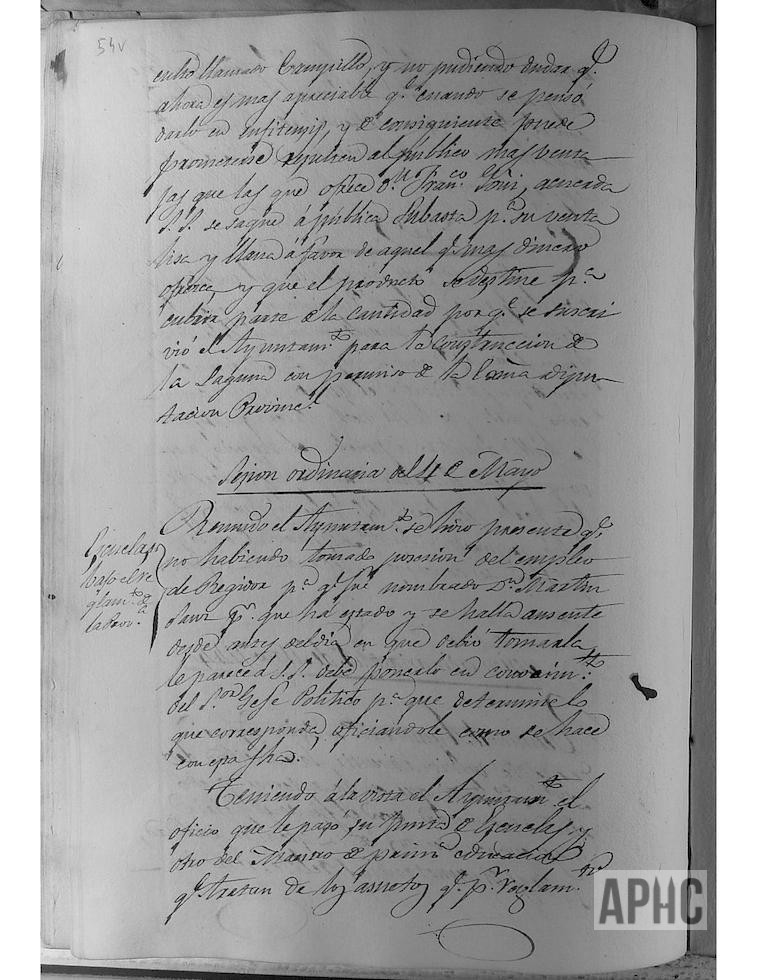 54v
culto llamado Campillo, y no pudiendo dudar q.e
ahora es mas apreciable q.e cuando se pensó
darlo en enfiteusis, y de consiguiente puede
prometerse resulten al público mas venta
jas que las que ofrece D.n Fran.co Goñi, acuerda
S. S. se saque á pública subasta p.a su venta
lisa y llana á favor de aquel q.e mas dinero
ofrece, y que el producto se destine p.a
cubrir parte de la cantidad por q.e se suscri
vió el Ayuntam.to para la construccion de
la Laguna con permiso de la Exma diput
tacion Provinc.l
Sesion ordinaria del 4 de Mayo
Reunido el Ayuntam.to se hizo presente q.e
no habiendo tomado posesion del empleo
de Regidor p.a q.e fué nombrado D.n Martin
p.r que ha estado y se halla ausente
desde antes del dia en que debió tomarla,
le parece á S. S. debe ponerlo en conocim.to
del S.or Gefe Politico p.a que determine lo
que corresponda, oficiandole como se hace
con esta fha.
Escuelas
bajo el re
glam.to de
la Prov.a
Teniendo á la vista el Ayuntam.to el
oficio que le pasó su Junta de Escuelas, y
otro del Maestro de prim.a educacion
q.e tratan de los asuetos q.e p.r reglam.to
APHC